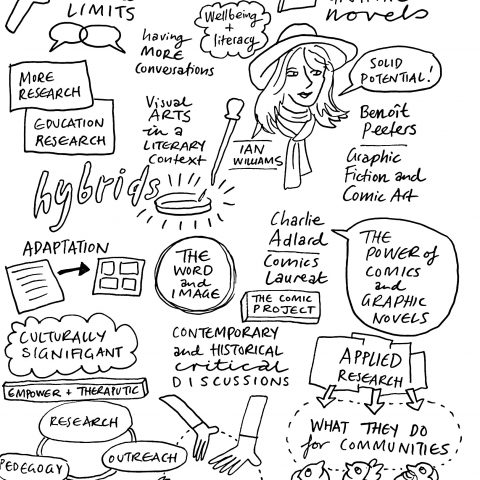 LIMITS
novels
Wellbeing
+
literacy
having
MORE
Conversations
SOLID
POTENTIAL!
MORE
RESEARCH
EDUCATION
RESEARCH
Visual
ARTS
in a
LITERARY
Context
IAN
WILLIAMS
Benoît
Peeters
Graphic
Fiction and
Comic Art
hybrids
ADAPTATION
THE
WORD
and
IMAGE
Charlie
Adlard
Comics
Laureat
THE COMIC
PROJECT
THE
POWER of
COMICS
and
GRAPHIC
NOVELS
CULTURALLY
SIGNIFIGANT
EMPOWER + THERAPUTIC
CONTEMPORARY
and HISTORICAL
critical
DISCUSSIONS
APPLIED
RESEARCH
RESEARCH
OUTREACH
PEDEGOGY
WHAT THEY DO
for COMMUNITIES